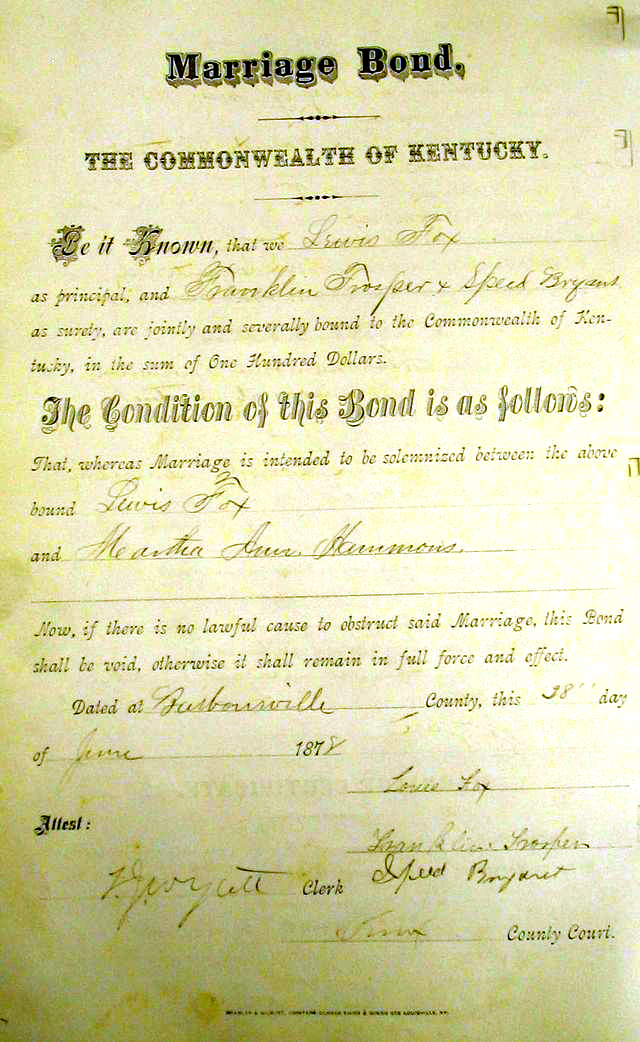 Marriage Bond.
THE COMMONWEALTH OF KENTUCKY.
Be it Known, that we Lewis Fox
as principal, and Franklin Trosper & Speed Bryant
as surety, are jointly and severally bound to the Commonwealth of Ken-
tucky, in the sum of One Hundred Dollars.
The Condition of this Bond is as follows:
That, whereas Marriage is intended to be solemnized between the above
bound Lewis Fox
and Martha Ann Hammons.
Now, if there is no lawful cause to obstruct said Marriage, this Bond
shall be void, otherwise it shall remain in full force and effect.
Dated at Barbourville County, this 28" day
of June 1878
Louis Fox
Attest:
Franklin Trosper
Clerk Speed Bryant
Knox County Court.